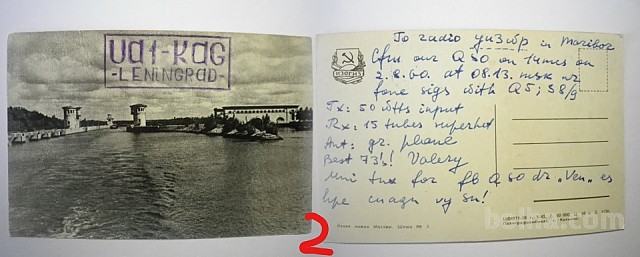 UA1-KAG
-LENINGRAD-
To radio in Maribor
Cfm our QSO on 14mcs on
2.8.60. at 08.13. msk
fone sigs with Q5; S8/9
Tx: 50 wtts input
Rx: 15 tubes superhet
Ant: gr. plane
Best 73's! Valery
Mni tnx for fb QSO dr "Ven" es
hpe cuagn vy sn!
ИЗОГИЗ
2
bolha.com